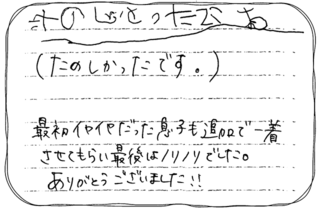 たのしかったです
(たのしかったです。)
最初イヤイヤだった息子も追加で一着
させてもらい最後はノリノリでした。
ありがとうございました!!